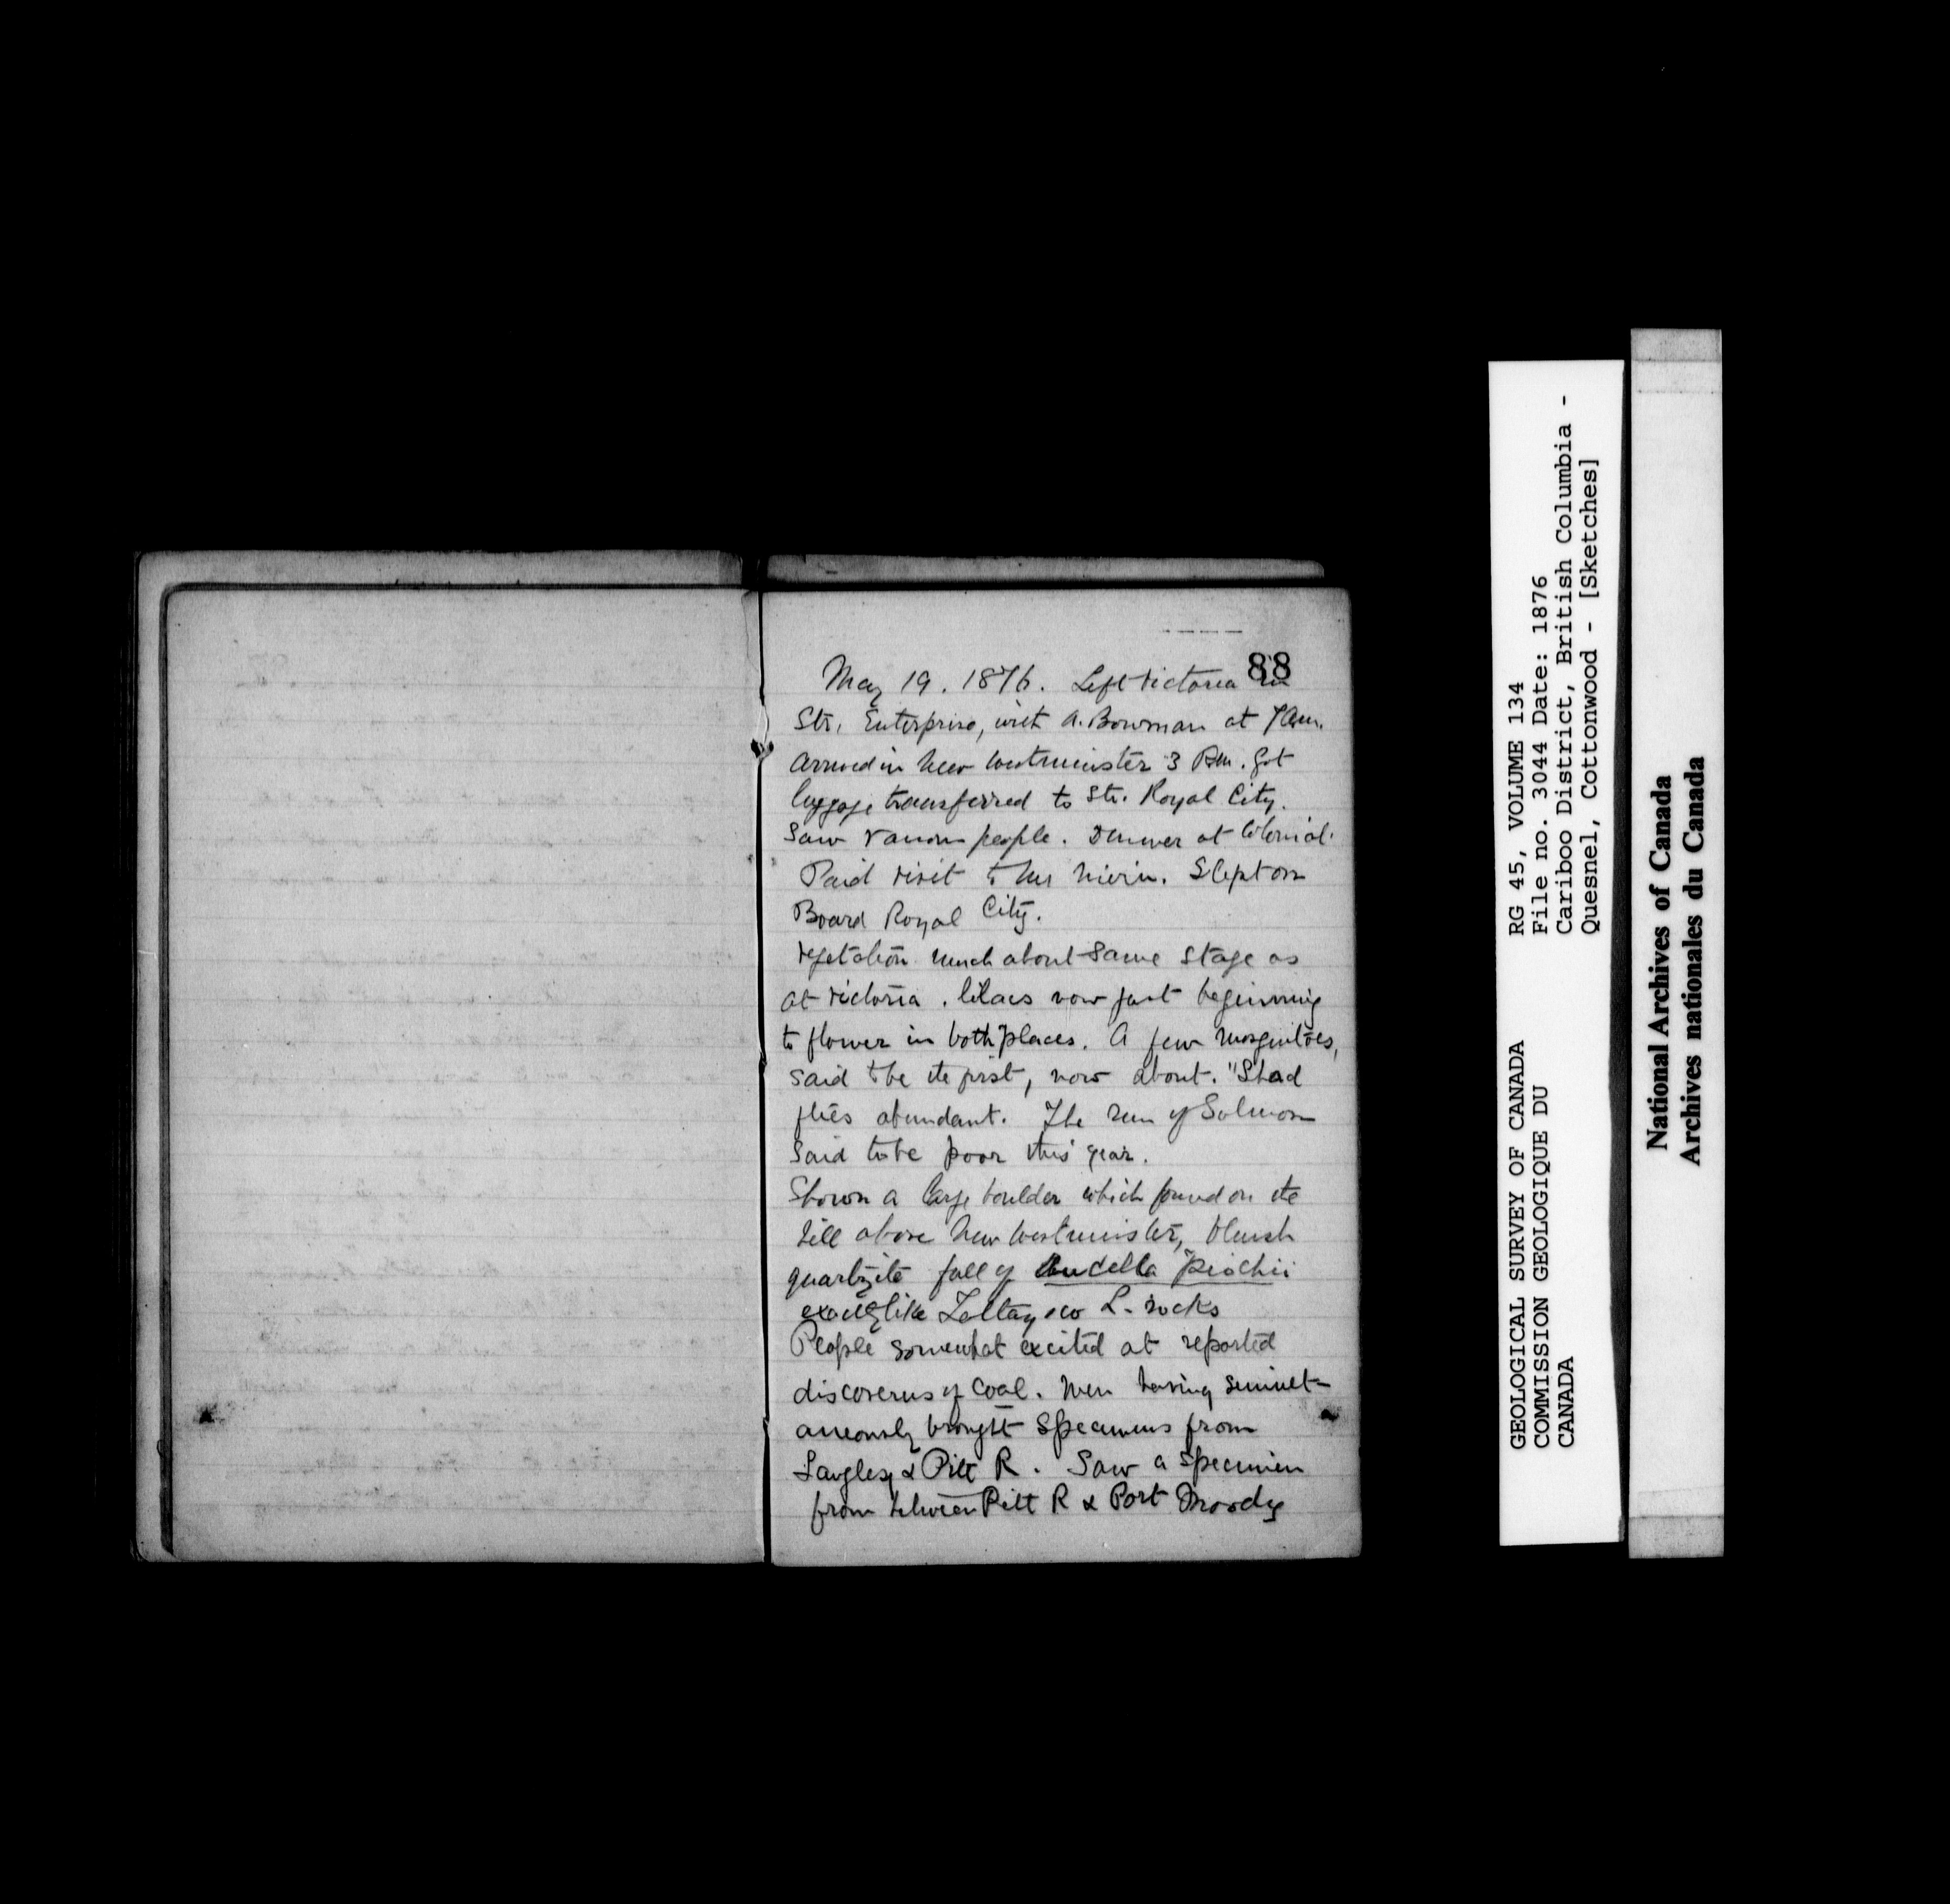 88
May 19. 1876. Left Victoria in
Str. Enterprise, with A. Bowman at 7 Am.
arrived in New Westminster 3 Pm. Got
luggage transferred to Str. Royal City.
Saw various people. Dinner at Colonial.
Paid visit to Mr Slept on
Board Royal City.
Vegetation much about same stage as
at Victoria. lilacs now just beginning
to flower in both places. A few mosquitoes,
said to be the first, now about. "Shad
flies abundant. The run of Salmon
said to be poor this year.
Shown a large boulder which found on the
hill above New Westminster, bluish
quartzite full of Aucella Piochii
exactly like L. rocks
People somewhat excited at reported
discoverys of Coal. Men having simult-
aneously brought specimens from
Langley & Pitt R. Saw a specimen
from between Pitt R & Port Moody
GEOLOGICAL SURVEY OF CANADA
COMMISSION GEOLOGIQUE DU
CANADA
RG 45, VOLUME 134
File no. 3044 Date: 1876
Cariboo District, British Columbia -
Quesnel, Cottonwood - [Sketches]
National Archives of Canada
Archives nationales du Canada